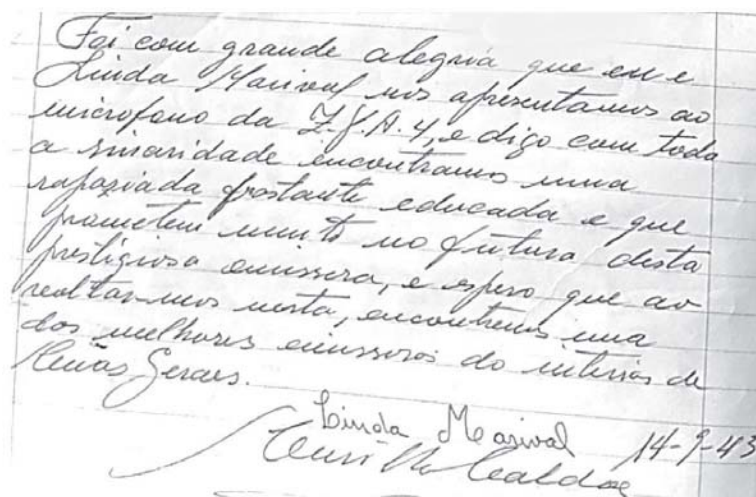 Foi com grande alegria que eu e
Linda Marival nos apresentamos ao
microfono da Z.Y.A. 4, e digo com toda
a sinaridade encontramos uma
rapaziada bastante educada e que
prometem muito no futuro desta
prestigiosa emissora, e espero que ao
voltarmos nesta, encontremos uma
das melhores emissoras do interior de
Minas Geraes.
Linda Marival 14-9-43
Caldas